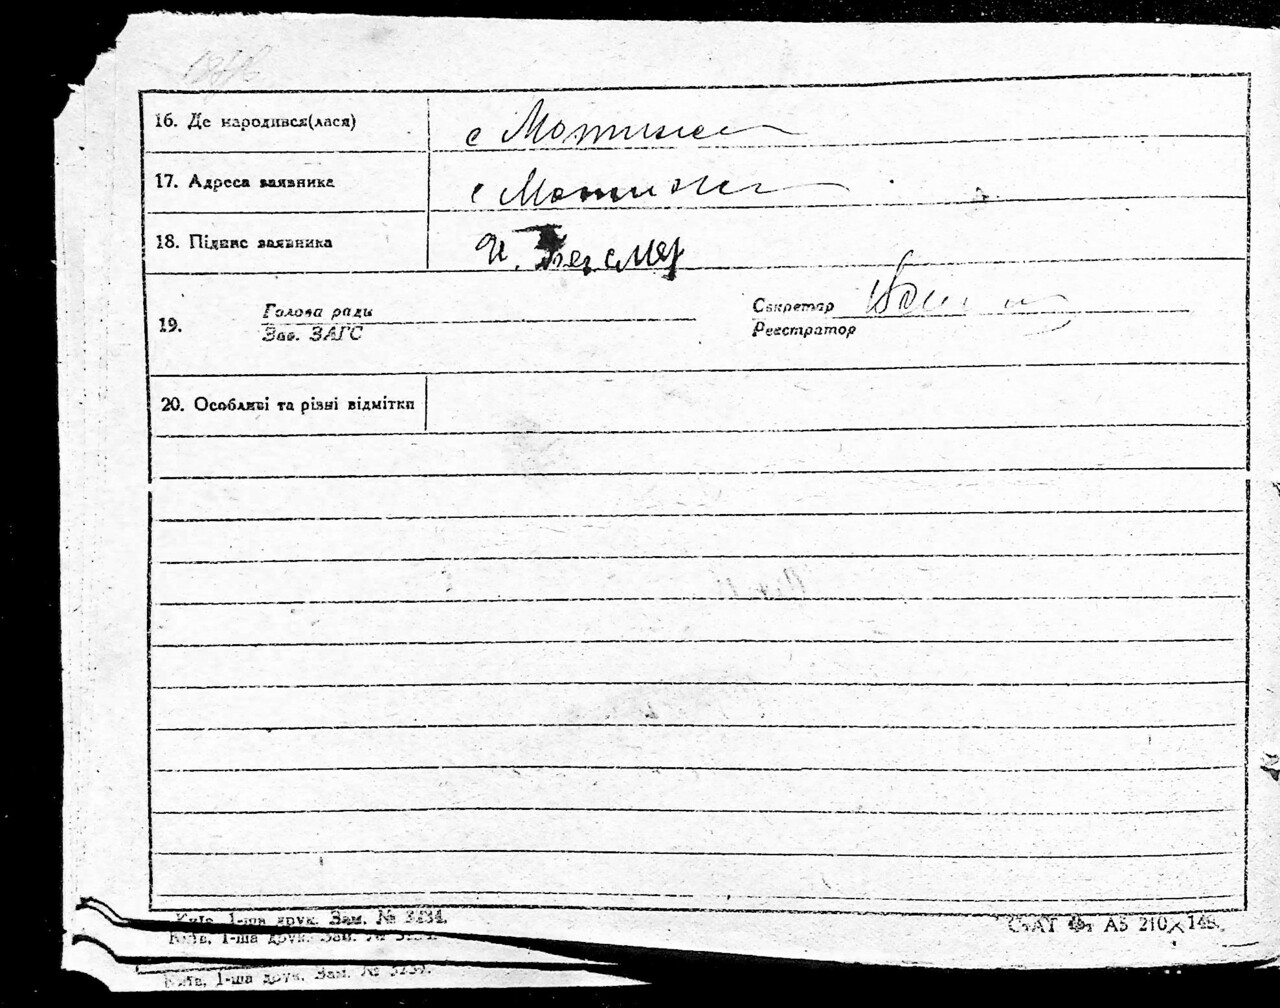 16. Де народився(лася) с Мотижи
17. Адреса заявника с Мотижи
18. Підпис заявника
19. Голова ради Секретар
Зав. ЗАГС Реєстратор
20. Особливі та різні відмітки
Київ, 1-ша друк. Зам. № 3234. СтАТ Фт А5 210×148.
Київ, 1-ша друк. Зам. №
Київ, 1-ша друк. Зам. №